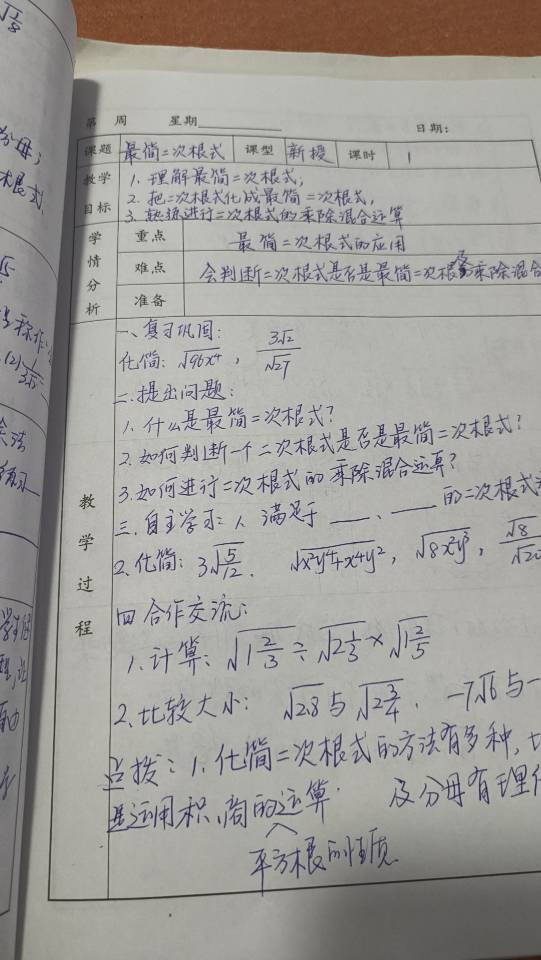 √1/8
分母;
根式.
第 周 星期 日期:
课题 最简二次根式 课型 新授 课时 1
教学目标
1. 理解最简二次根式,
2. 把二次根式化成最简二次根式,
3. 熟练进行二次根式的乘除混合运算
学情分析
重点 最简二次根式的应用
难点 会判断二次根式是否是最简二次根式及乘除混合
准备
教学过程
一、复习巩固:
化简: √96x⁴ , 3√2/√27
二.提出问题:
1. 什么是最简二次根式?
2. 如何判断一个二次根式是否是最简二次根式?
3. 如何进行二次根式的乘除混合运算?
三.自主学习: 1. 满足于 ____、____ 的二次根式
2. 化简: 3√5/12 . √x²y⁴+x⁴y² , √8x²y³ , √8/√20
四 合作交流:
1. 计算: √1 2/3 ÷ √2 1/3 × √1 2/5
2. 比较大小: √2.8 与 √2 3/4 . -7√6 与 -
点拨: 1. 化简二次根式的方法有多种,
是运用积、商的运算. 及分母有理化
平方根的性质.